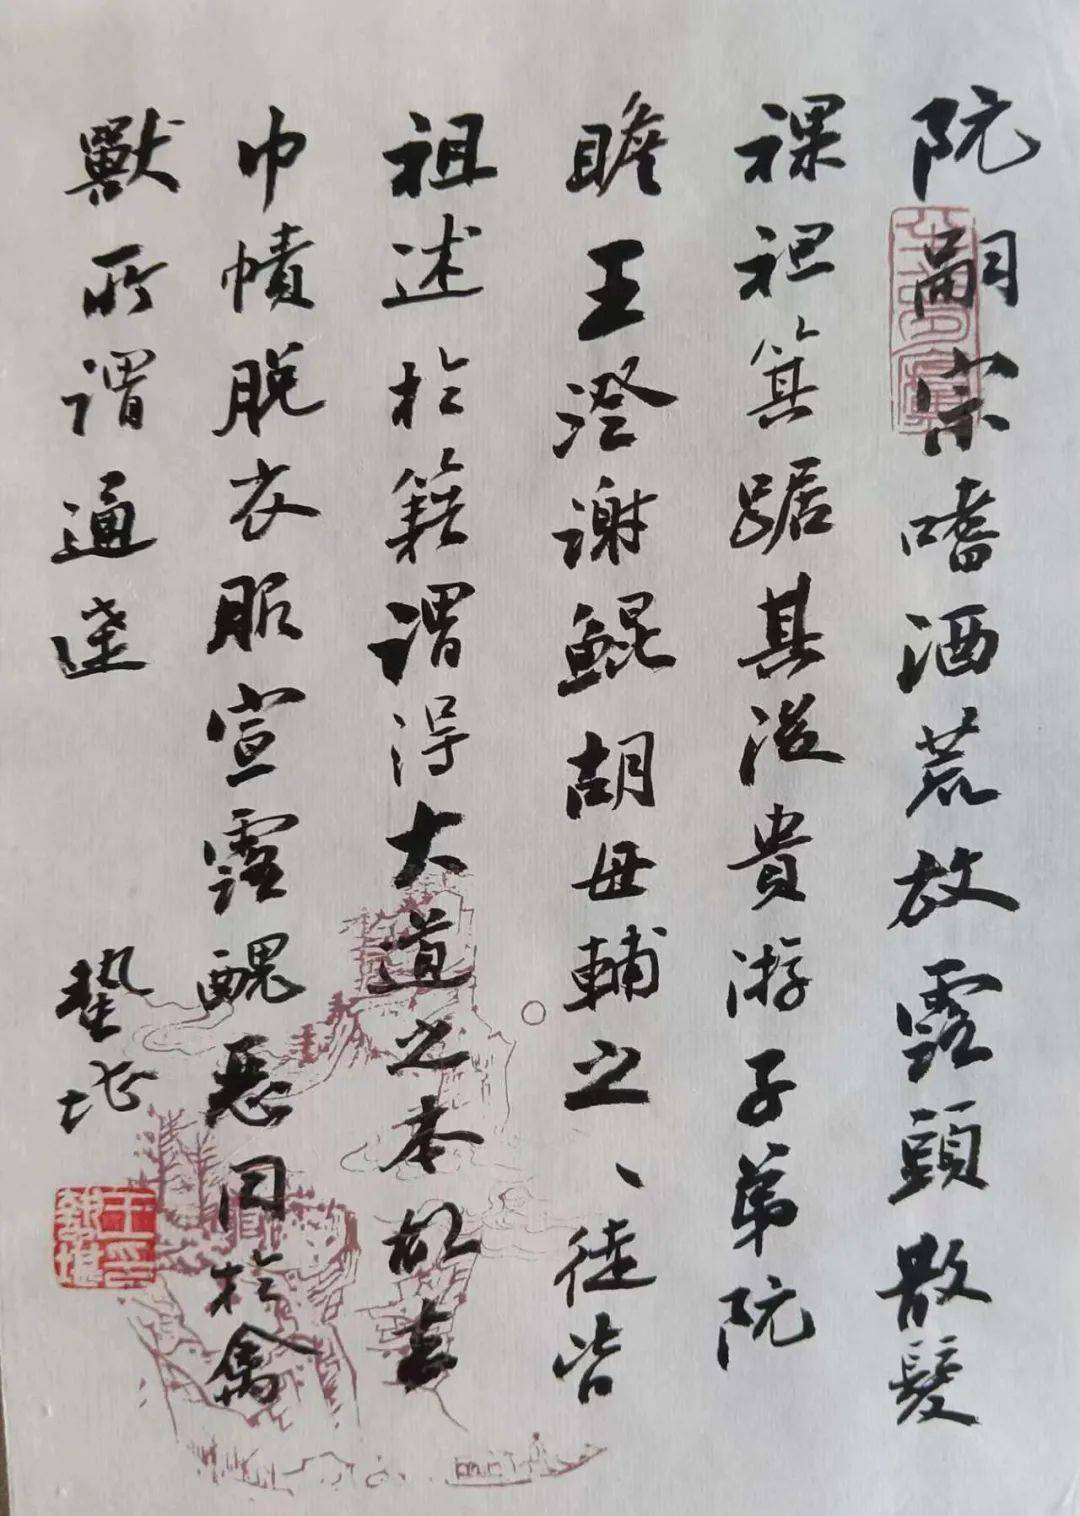 阮嗣宗嗜酒荒放露頭散髮
裸袒箕踞其後貴游子弟阮
瞻王澄謝鯤胡毋輔之、徒皆
祖述於籍謂得大道之本故去
巾幘脫衣服宣露醜惡同於禽
獸所謂通達
蟄堪